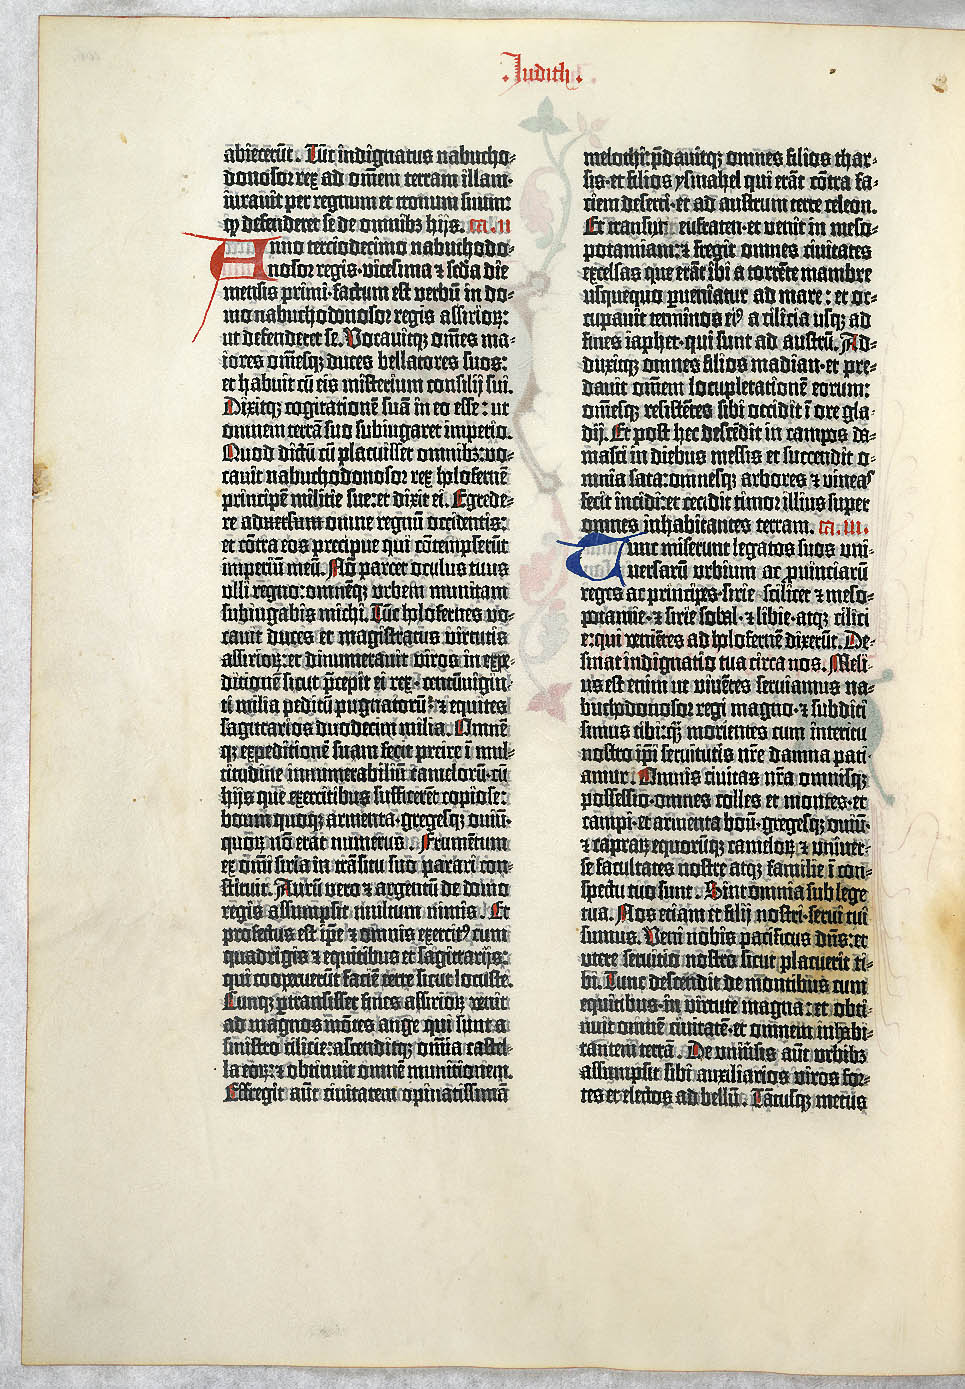 .Judith.
abiecerūt. Tūc indignatus nabucho-
donosor rex ad om̄em terram illam·
iurauit per regnum et tronum suum:
ꝙ defenderet se de omnibꝫ hijs. ca. ii
Anno terciodecimo nabuchodo-
nosor regis·vicesima ⁊ secūda die
mensis primi·factum est verbū in do-
mo nabuchodonosor regis assirioꝝ:
ut defenderet se. Vocauitqꝫ om̄es ma-
iores om̄esqꝫ duces bellatores suos:
et habuit cū eis misterium consilij sui.
Dixitqꝫ cogitationē suā in eo esse: ut
omnem terrā suo subiugaret imperio.
Quod dictū cū placuisset omnibꝫ: vo-
cauit nabuchodonosor rex holofernē
principē militie sue: et dixit ei. Egrede-
re aduersum omne regnū occidentis:
et cōtra eos precipue qui cōtempserūt
imperiū meū. Nō parcet oculus tuus
ulli regno: omnēqꝫ urbem munitam
subiugabis michi. Tūc holofernes vo-
cauit duces et magistratus virtutis
assirioꝝ: et dinumerauit viros in expe-
ditionē sicut p̄cepit ei rex·centūuigin-
ti milia peditū pugnatorū: ⁊ equites
sagittarios duodecim milia. Omnē-
qꝫ expeditionē suam fecit preire ī mul-
titudine innumerabiliū cameloꝝ· cū
hijs que exercitibus sufficerēt copiose:
boum quoqꝫ armenta·gregesqꝫ ouiū·
quoꝝ nō erāt numerus. Frumentum
ex om̄i siria in trāsitu suo parari con-
stituit. Aurū vero ⁊ argentū de domo
regis assumpsit multum nimis. Et
profectus est ip̄e ⁊ omnis exercitꝰ cum
quadrigis ⁊ equitibus et sagittarijs:
qui cooperuerūt faciē terre sicut locuste.
Cunqꝫ ꝑtransisset fines assirioꝝ venit
ad magnos mōtes ange qui sunt a
sinistro cilicie: ascenditqꝫ om̄ia castel-
la eoꝝ: ⁊ obtinuit omnē munitionem.
Effregit aūt ciuitatem opinatissimā
melothi: p̄dauitqꝫ omnes filios thar-
sis·et filios ysmahel qui erāt cōtra fa-
ciem deserti·et ad austrum terre celeon.
Et transiuit eufraten·et venit in meso-
potamiam: ⁊ fregit omnes ciuitates
excelsas que erāt ibi a torrēte mambre
usquequo ꝑueniatur ad mare: et oc-
cupauit terminos eiꝰ a cilicia usqꝫ ad
fines iaphet·qui sunt ad austrū. Ad-
duxitqꝫ omnes filios madian·et pre-
dauit om̄em locupletationē eorum:
om̄esqꝫ resistētes sibi occidit ī ore gla-
dij. Et post hec descēdit in campos da-
masci in diebus messis et succendit o-
mnia sata: omnesqꝫ arbores ⁊ vineas
fecit incidi: et cecidit timor illius super
omnes inhabitantes terram. ca. iii.
Tunc miserunt legatos suos uni-
uersarū urbium ac ꝓuinciarū
reges ac principes·sirie scilicet ⁊ meso-
potamie·⁊ sirie sobal·⁊ libie·atqꝫ cilici-
e: qui veniētes ad holofernē dixerūt. De-
sinat indignatio tua circa nos. Meli-
us est enim ut viuētes seruiamus na-
buchodonosor regi magno·⁊ subditi
simus tibi: qꝫ morientes cum interitu
nostro ip̄i seruitutis nr̄e damna pati-
amur. Omnis ciuitas nr̄a omnisqꝫ
possessio·omnes colles et montes·et
campi·et armenta boū·gregesqꝫ ouiū·
⁊ capraꝝ equorūqꝫ cameloꝝ ⁊ uniuer-
se facultates nostre atqꝫ familie ī con-
spectu tuo sunt. Sint omnia sub lege
tua. Nos etiam et filij nostri·serui tui
sumus. Veni nobis pacificus dn̄s: et
utere seruitio nostro sicut placuerit ti-
bi. Tunc descendit de montibus cum
equitibus·in virtute magna: et obti-
nuit omnē ciuitatē·et omnem inhabi-
tantem terrā. De uniuersis aūt urbibꝫ
assumpsit sibi auxiliarios viros for-
tes et electos ad bellū. Tātusqꝫ metus